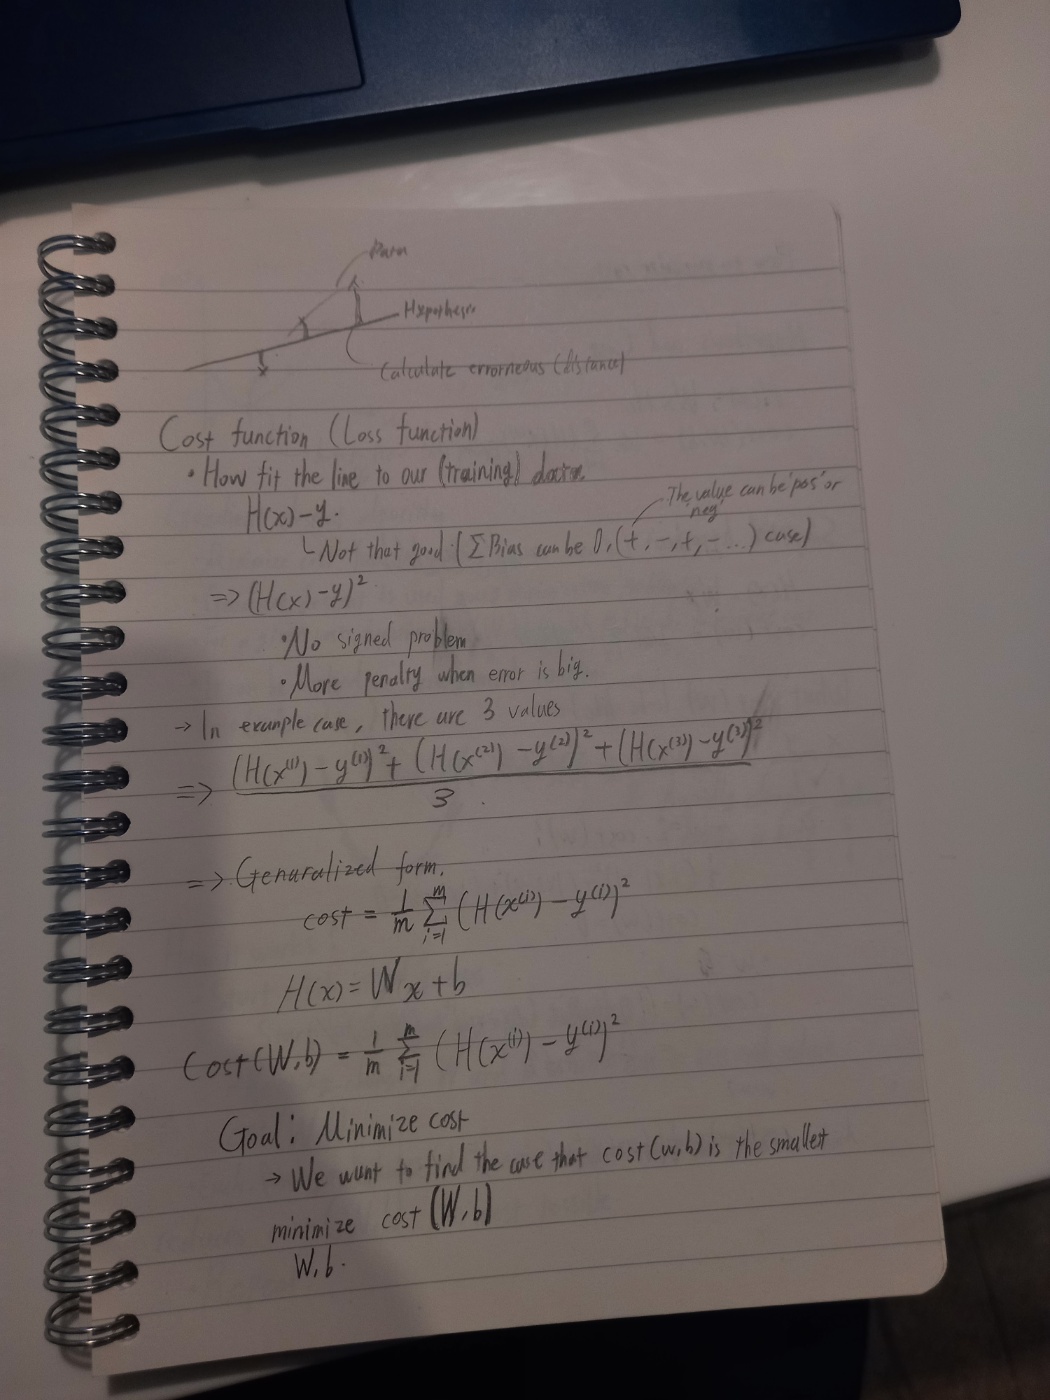 Data
Hypothesis
Calculate errorneous (distance)
Cost function (Loss function)
• How fit the line to our (training) data.
H(x)-y.
The value can be 'pos' or
neg
Not that good (ΣBias can be 0, (+, -, +, - ...) case)
=> (H(x) - y)²
• No signed problem
• More penalty when error is big.
→ In example case, there are 3 values
=> (H(x⁽¹⁾) - y⁽¹⁾)² + (H(x⁽²⁾) - y⁽²⁾)² + (H(x⁽³⁾) - y⁽³⁾)²
3
=> Genaralized form.
cost = 1/m Σ_{i=1}^{m} (H(x⁽ⁱ⁾) - y⁽ⁱ⁾)²
H(x) = Wx + b
Cost(W,b) = 1/m Σ_{i=1}^{m} (H(x⁽ⁱ⁾) - y⁽ⁱ⁾)²
Goal: Minimize cost
→ We want to find the case that cost(w,b) is the smallest
minimize cost(W,b)
W,b.